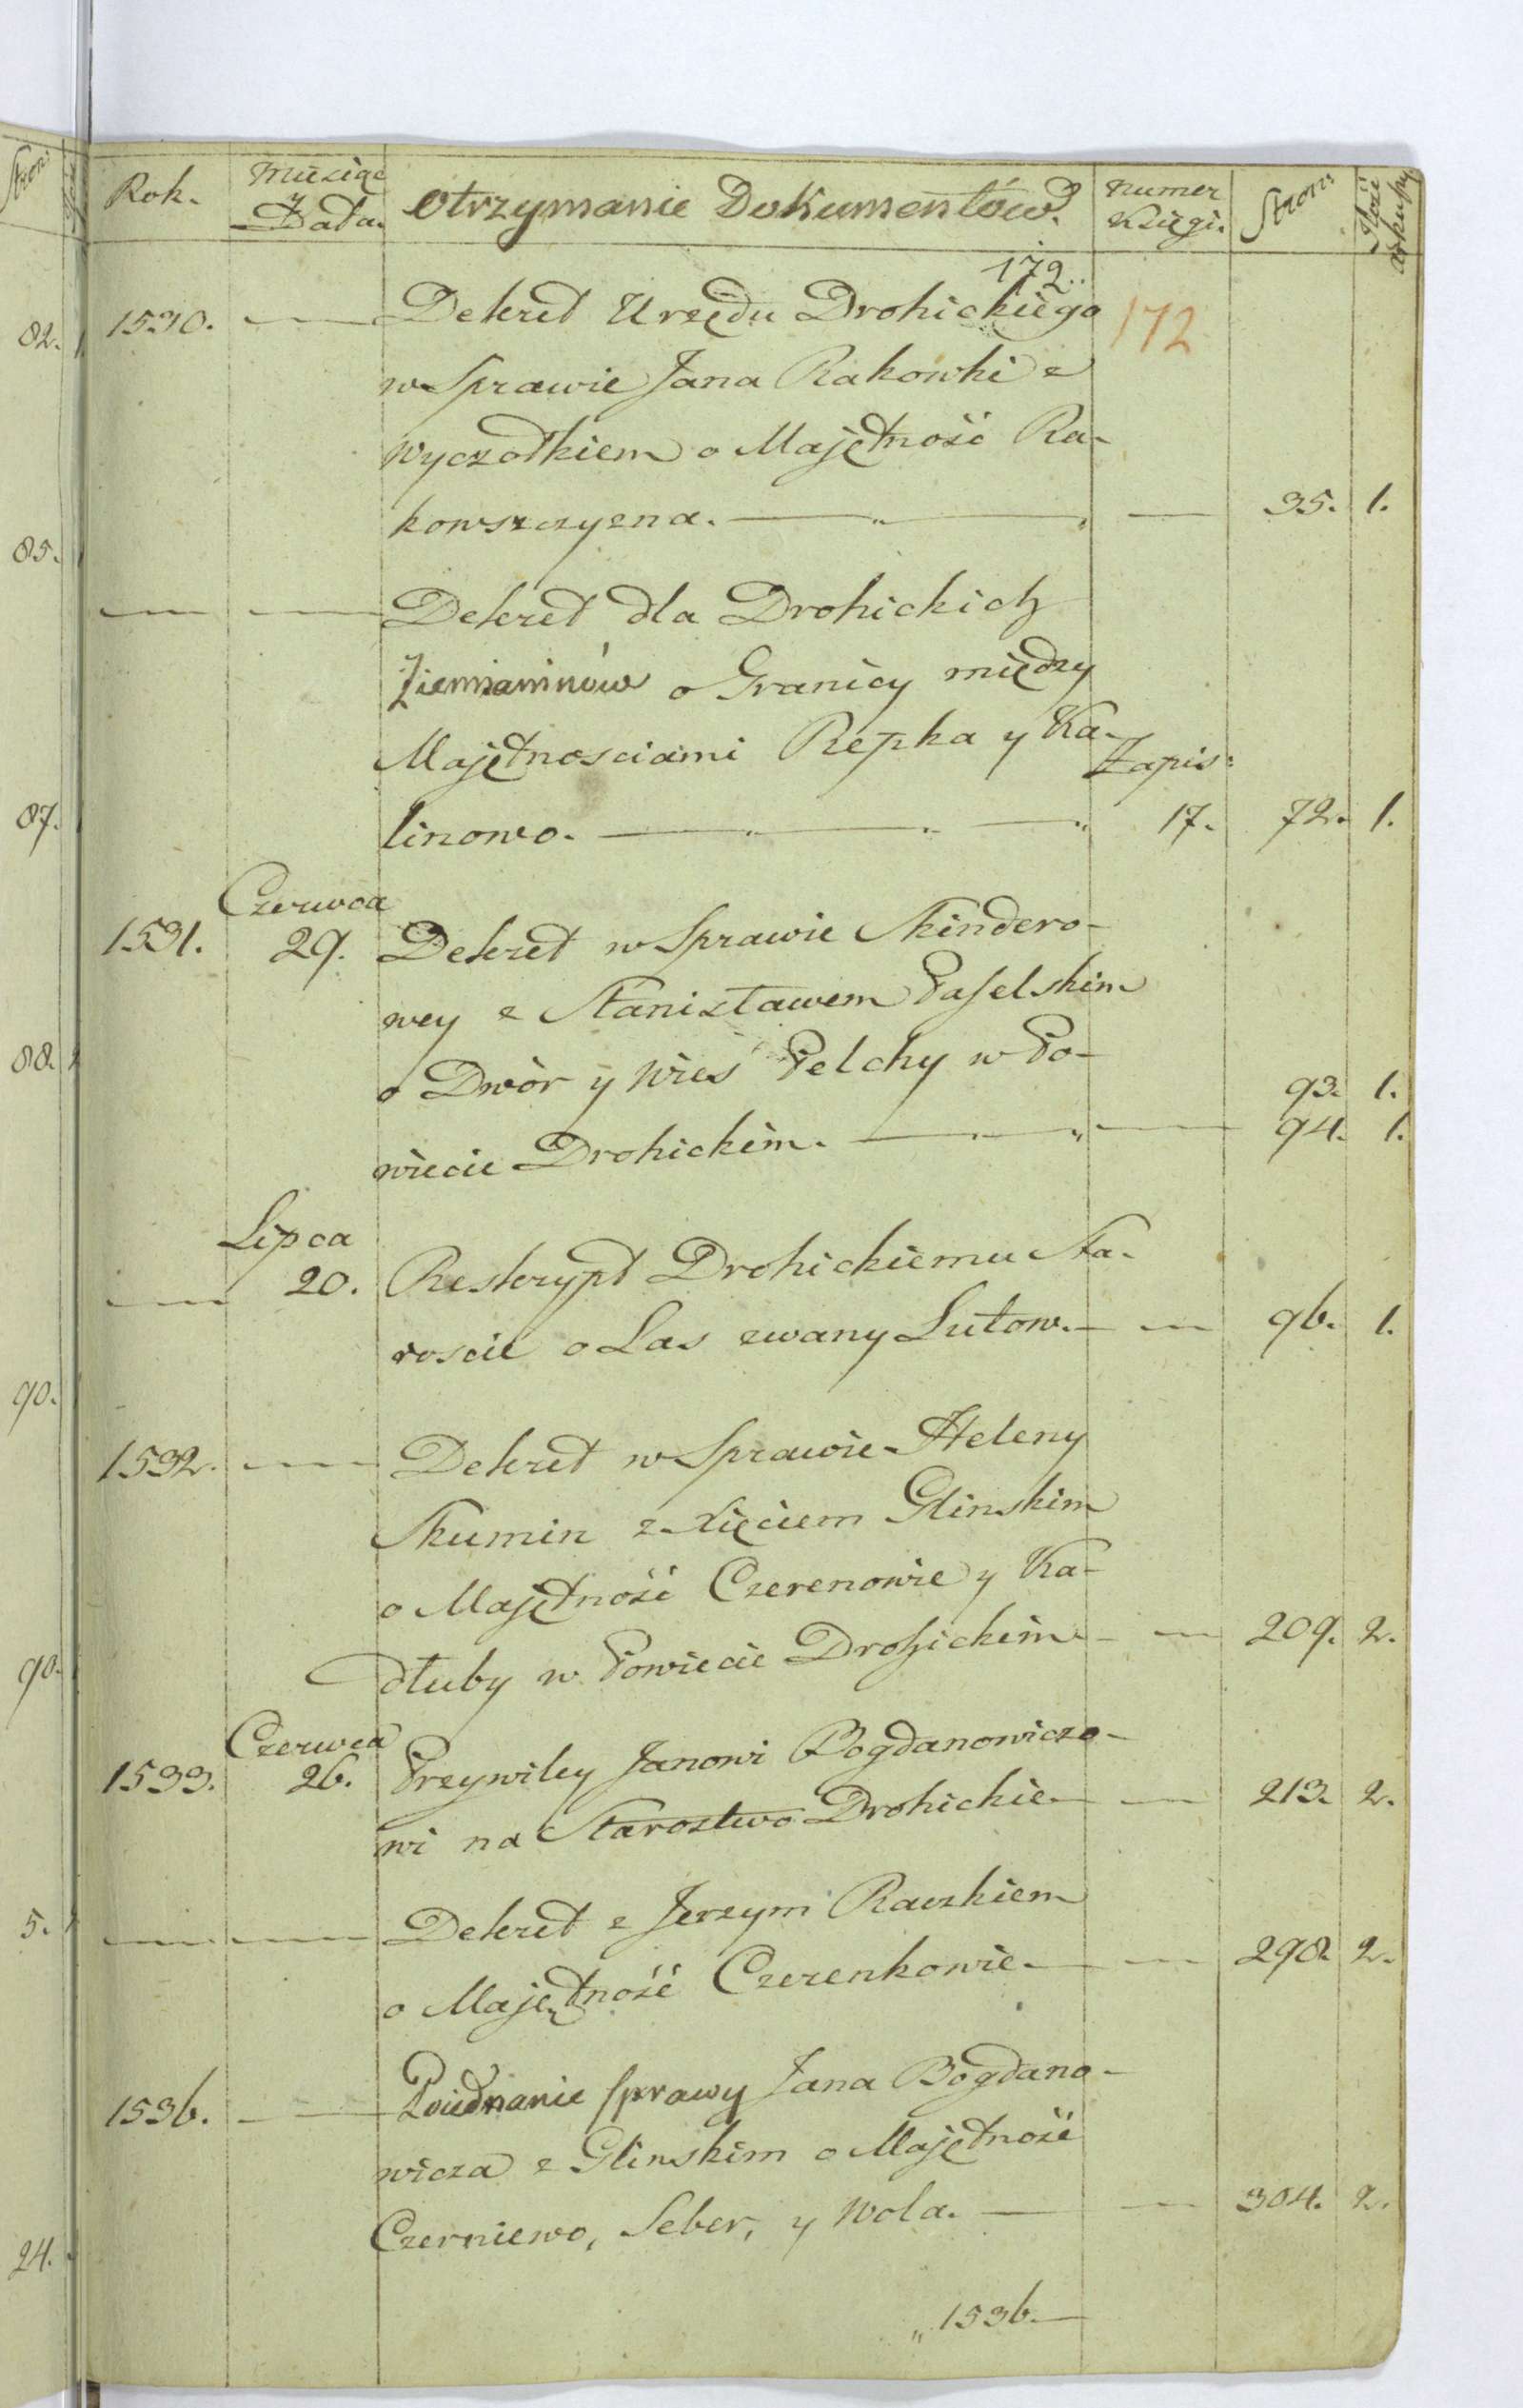 Rok. Miesiąc y Data. Otrzymanie Dokumentów. Numer Księgi. Stron: Ilość arkuszy
172.
1530. — Dekret Urzędu Drohickiego 172
w Sprawie Jana Rakowki z
Wyczołkiem o Majętność Ra-
kowszczyzna. — 35. 1.
— — Dekret dla Drohickich
Ziemianinów o Granicy między
Majętnosciami Repka y Ka- Zapis:
linowo. — 17. 72. 1.
Czerwca
1531. 29. Dekret w Sprawie Skindero-
wey z Stanisławem
o Dwór y Wieś Pelchy w Po- 93. 1.
wiecie Drohickim. — 94. 1.
Lipca
— 20. Reskrypt Drohickiemu Sta-
roscie o Las zwany Lutow. — 96. 1.
1532. — Dekret w Sprawie Heleny
Skumin z Xięciem Glinskim
o Majętność Czerenowie y Ka-
dłuby w Powiecie Drohickim — 209. 2.
Czerwca
1533. 26. Przywiley Janowi Bogdanowiczo-
wi na Starostwo Drohickie — 213. 2.
— — Dekret z Jerzym Raczkiem
o Majętność Czerenkowie — 298. 2.
1536. — Poiednanie sprawy Jana Bogdano-
wicza z Glinskim o Majętność
Czerniewo, Seber, y Wola. — 304. 2.
„ 1536. —
Stron:
82.
85.
87.
88.
90.
90.
5.
24.